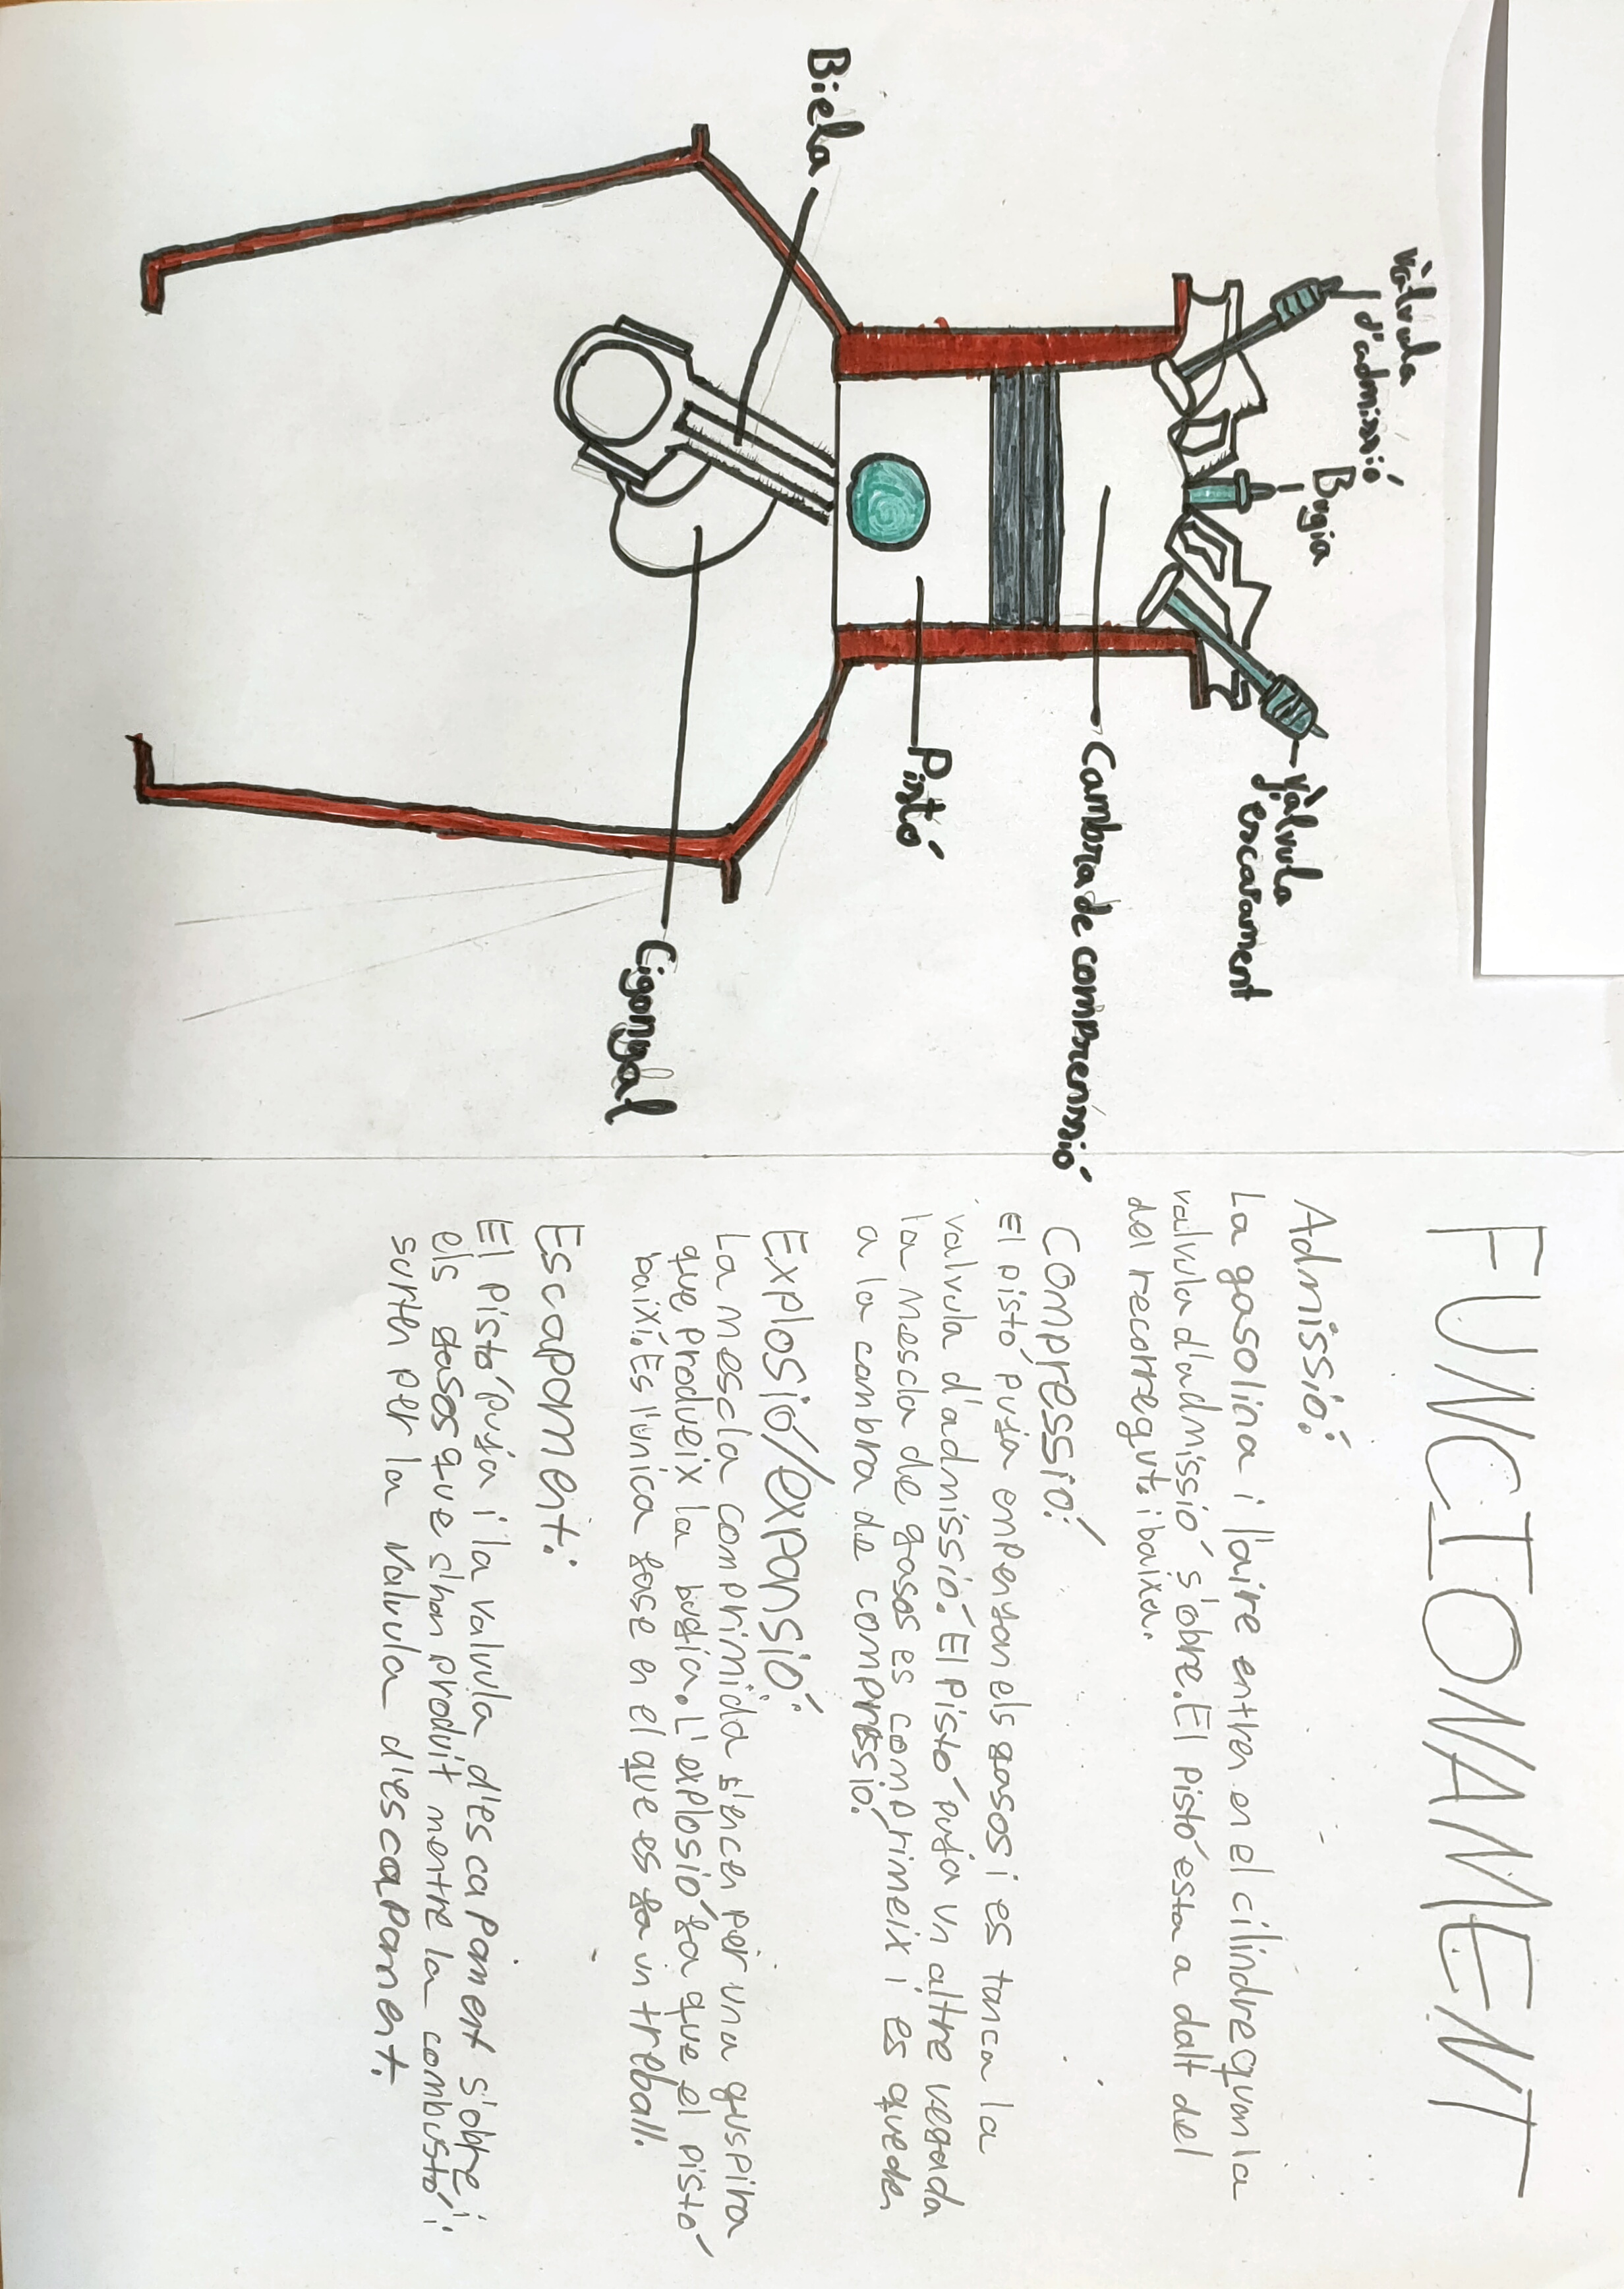 vàlvula
d'admissió
Bugia
vàlvula
escapament
Cambra de compressió
Pistó
Biela
Cigonyal
FUNCIONAMENT
Admissió:
La gasolina i l'aire entren en el cilindre quan la
valvula d'admissió s'obre. El pistó esta a dalt del
del recorregut i baixa.
Compressió:
El pistó puja empenyan els gasos i es tanca la
valvula d'admissió. El pistó puja un altre vegada
la mescla de gasos es comprimeix i es queden
a la cambra de compressió.
Explosió/expansió:
La mescla comprimida s'encen per una guspira
que produeix la bugía. L'explosió fa que el pistó
baixi. És l'única fase en el que es fa un treball.
Escapament:
El pistó puja i la valvula d'escapament s'obre i
els gasos que s'han produit mentre la combustó i
surten per la valvula d'escapament.